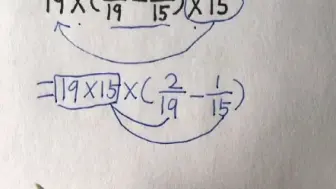 19×( /19 - /15)×15
=19×15×(2/19-1/15)